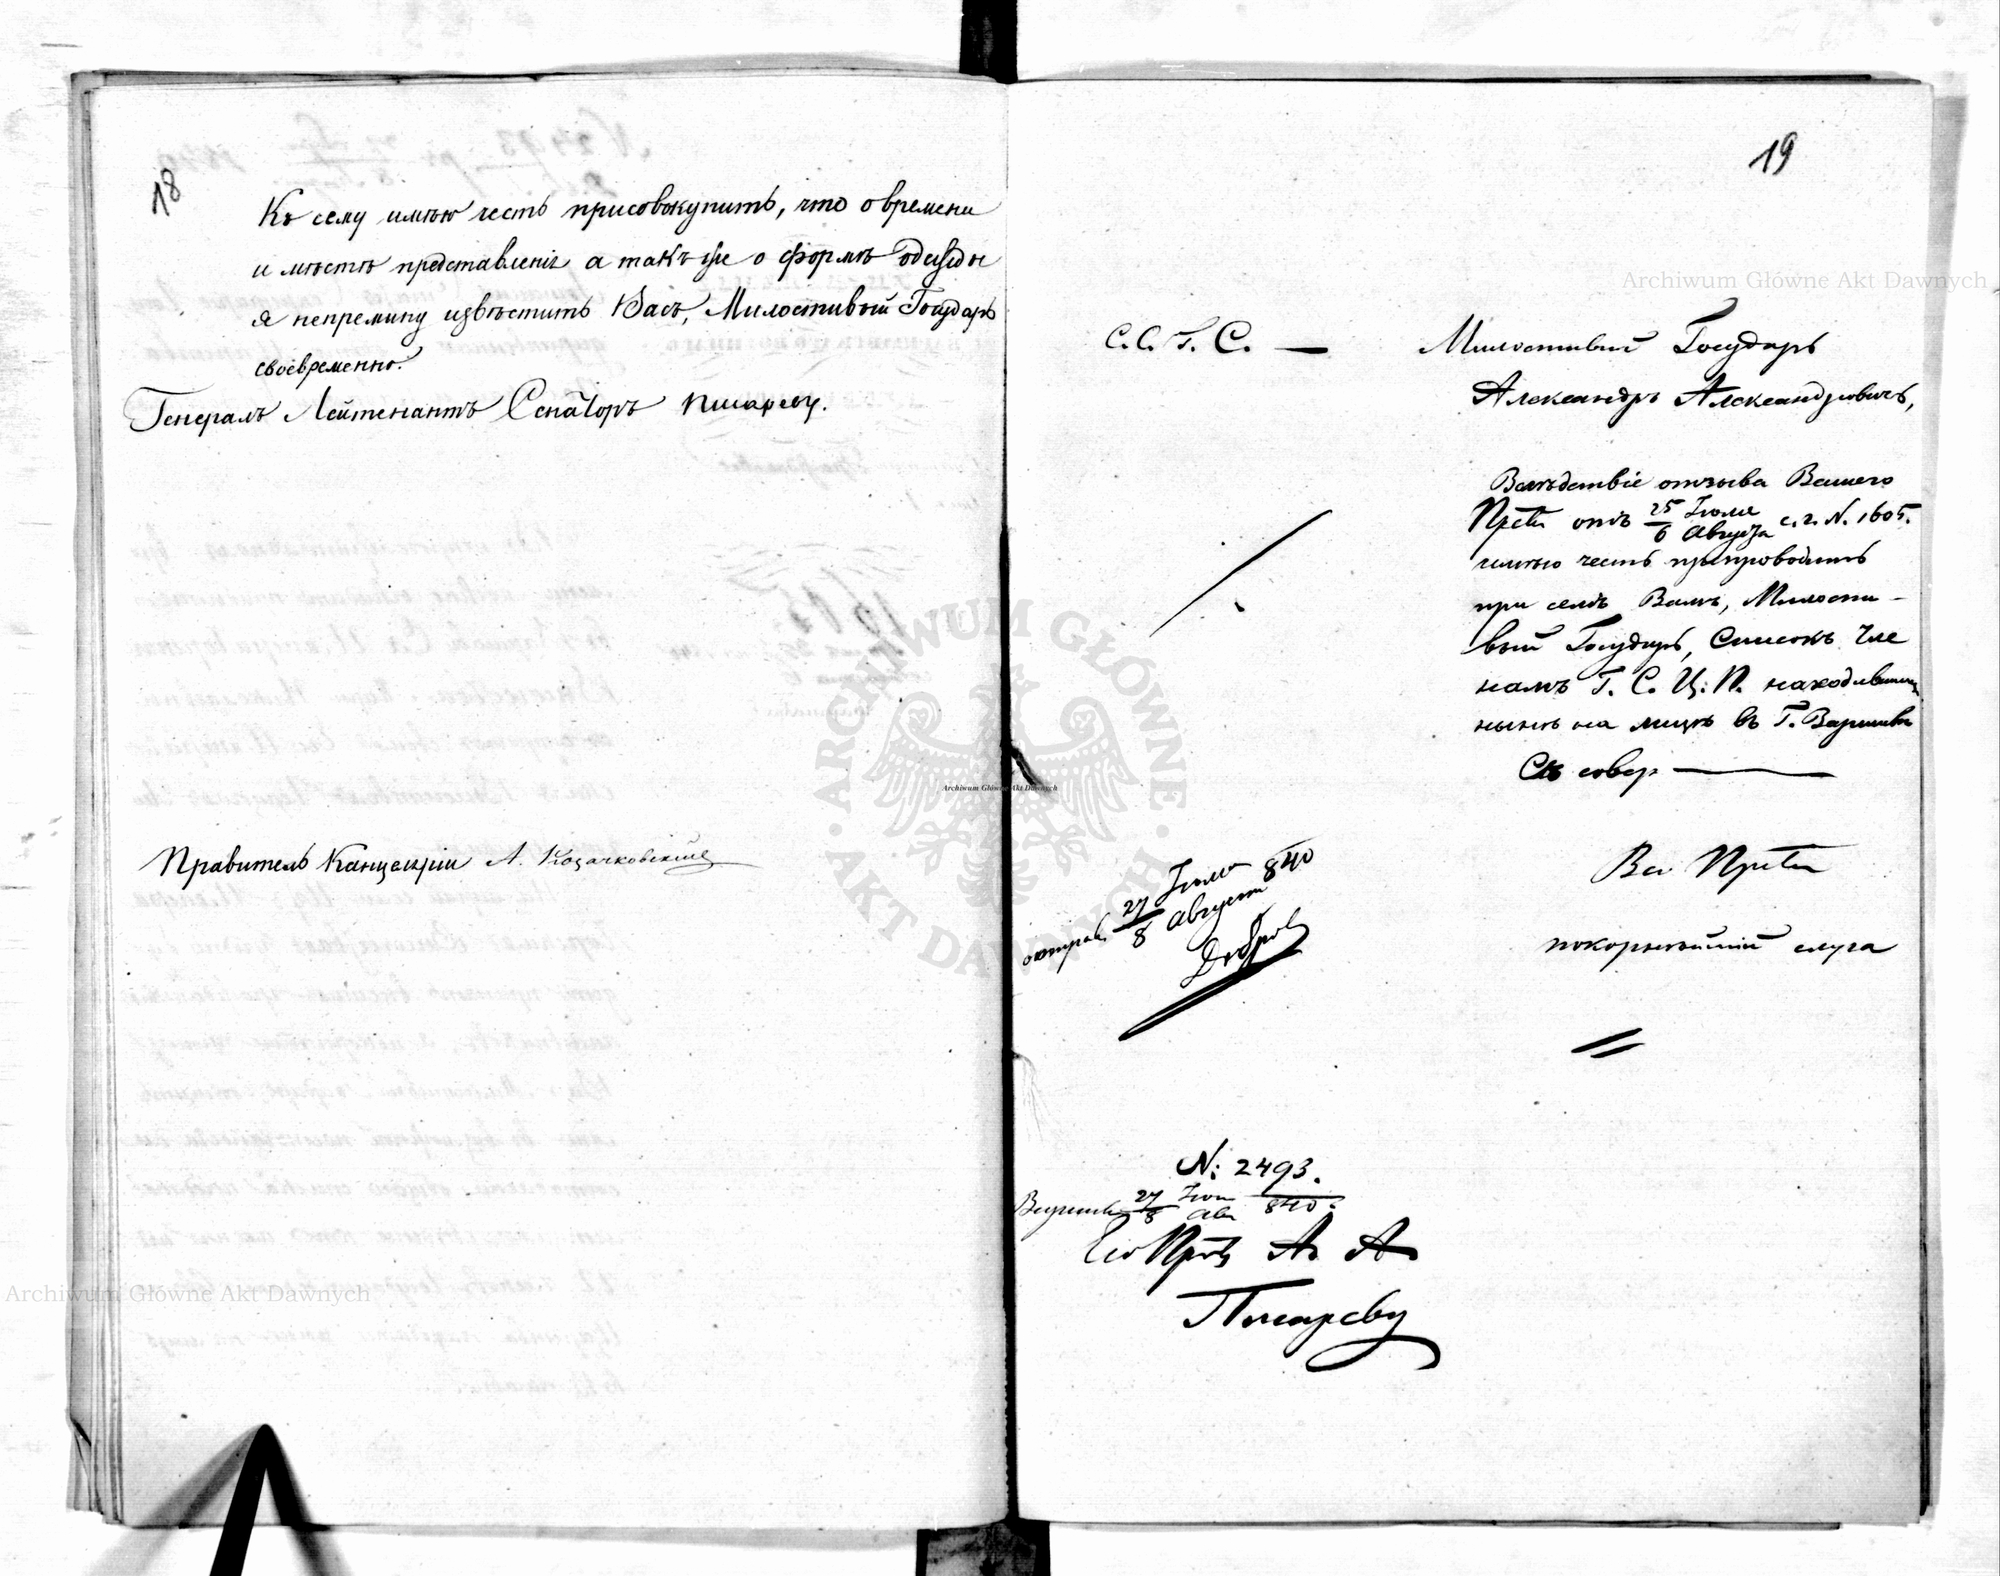 18
Къ сему имѣю честь присовокупить, что о времени
и мѣстѣ представленія а такъ же о формѣ одежды
я непремину извѣстить Васъ, Милостивый Государь
своевременно.
Генералъ Лейтенантъ Сенаторъ Писаревъ.
Правитель Канцеляріи А. Козачковскій
19
С. С. Г. С. —
Милостивый Государь
Александръ Александровичъ,
Вслѣдствіе отзыва Вашего
Прств. отъ 25 Іюля / 6 Августа с. г. N. 1605.
имѣю честь препроводить
при семъ Вамъ, Милости-
вый Государь, Списокъ Чле
намъ Г. С. Ц. П. находившимся
нынѣ на лицѣ въ Г. Варшавѣ
Съ совер —
Ва Прств
покорнѣйшій слуга
отправ. 27 Іюля / 8 Августа 840
N: 2493.
Варшава 27 Іюл / 8 Авг 840.
Его Прву А. А.
Писареву
Archiwum Główne Akt Dawnych
Archiwum Główne Akt Dawnych
Archiwum Główne Akt Dawnych
ARCHIWUM GŁÓWNE AKT DAWNYCH